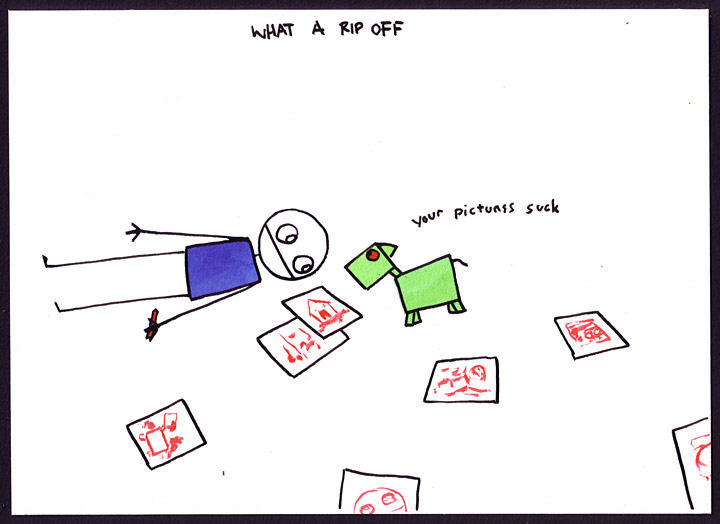 WHAT A RIP OFF
your pictures suck